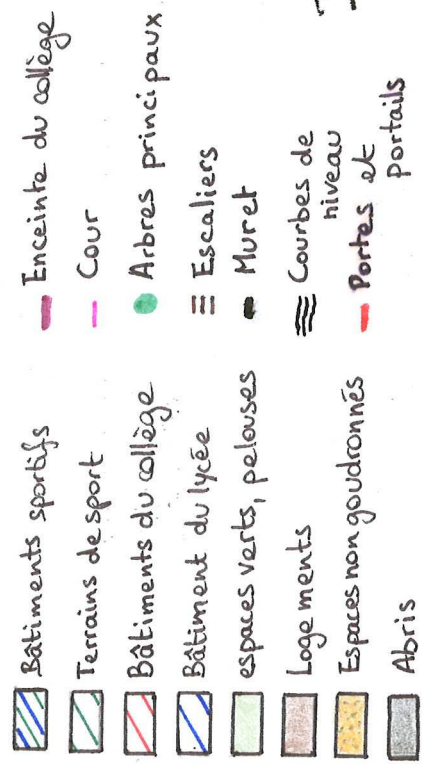 Bâtiments sportifs
Terrains de sport
Bâtiments du collège
Bâtiment du lycée
espaces verts, pelouses
Logements
Espaces non goudronnés
Abris
Enceinte du collège
Cour
Arbres principaux
Escaliers
Muret
Courbes de
niveau
Portes et
portails